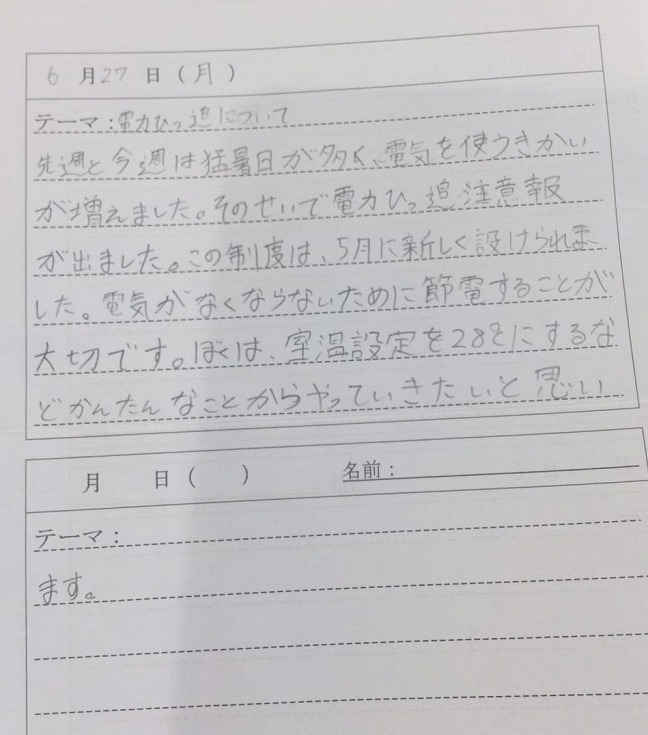 6月27日(月)
テーマ:電力ひっ迫について
先週と今週は猛暑日が多く、電気を使うきかい
が増えました。そのせいで電力ひっ迫注意報
が出ました。この制度は、5月に新しく設けられま
した。電気がなくならないために節電することが
大切です。ぼくは、室温設定を28℃にするな
どかんたんなことからやっていきたいと思い
月 日( ) 名前:
テーマ:
ます。